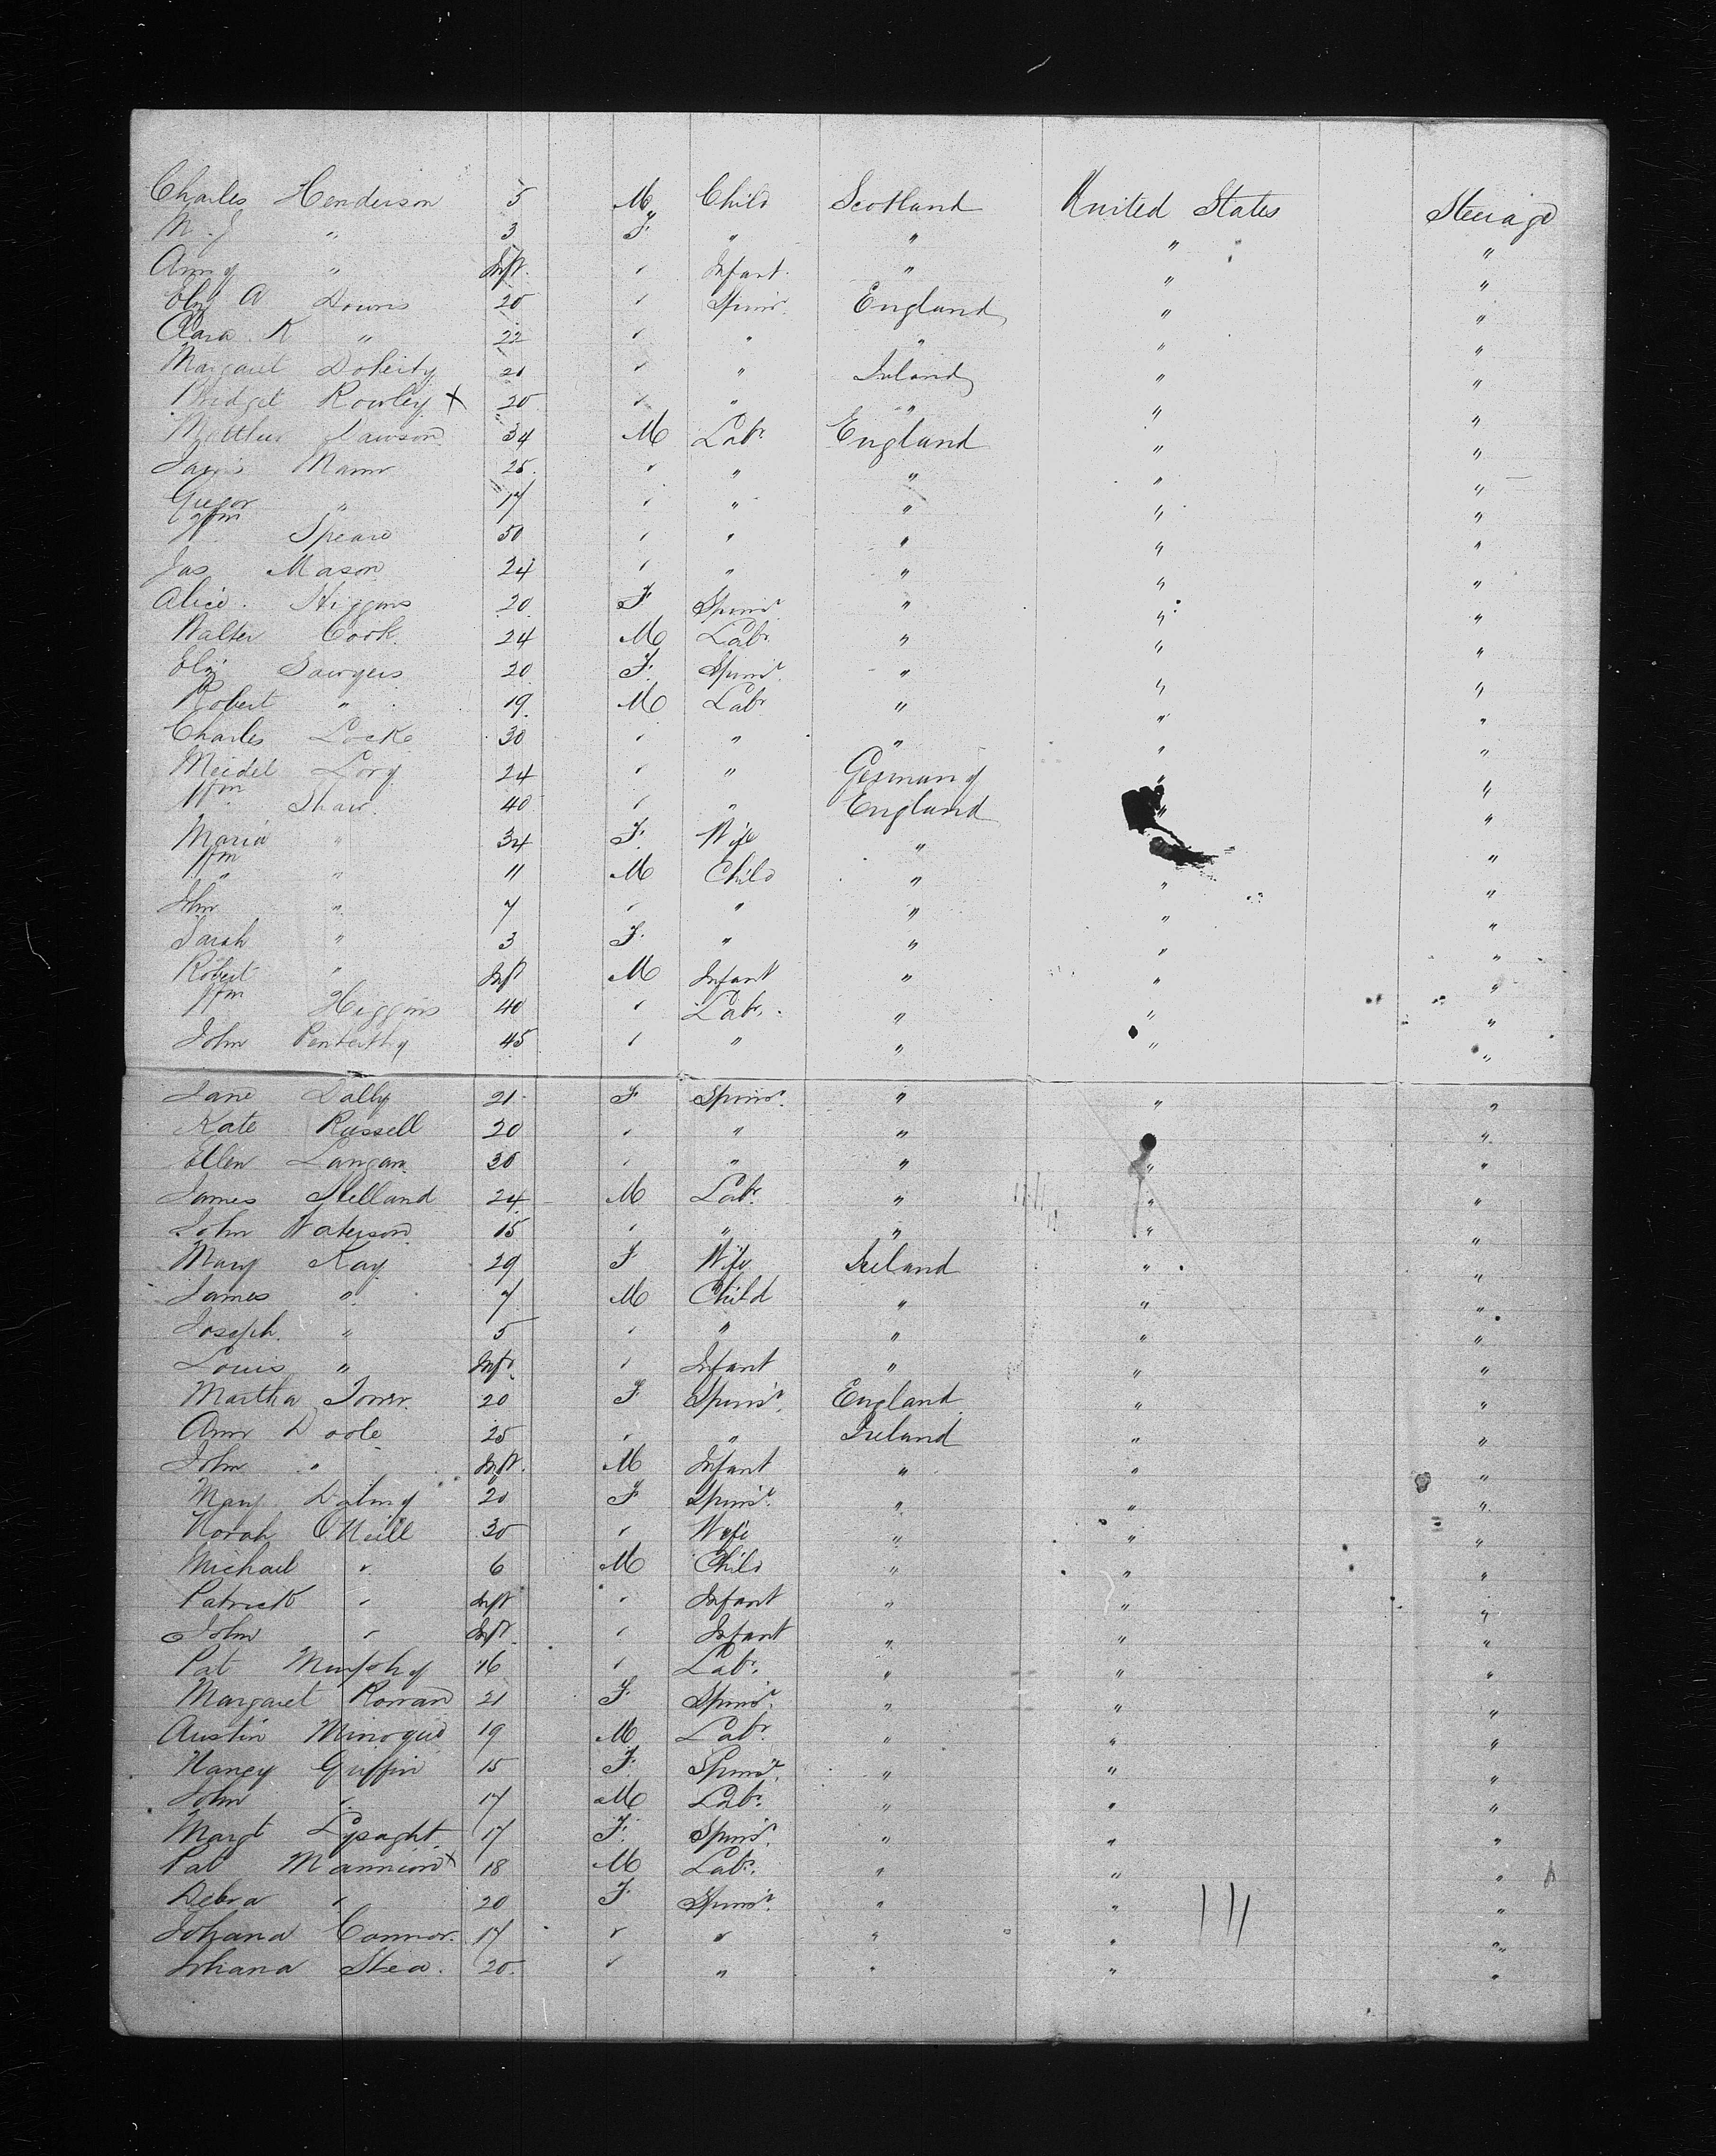 Charles Henderson 5 M Child Scotland United States Steerage
M. J " 3 F. " " " "
Amy " Inft. " Infant. " " "
Eliz A Downs 20 " Spinr. England " "
Clara K " 22 " " " " "
Margaret Doherty 21 " " Ireland " "
Bridget Rowley X 20 " " " " "
Matthew Dawson 34 M Labr England " "
Mann 25. " " " " "
Gregor " 17 " " " " "
Wm Speare 50 " " " " "
Jas Mason 24 " " " " "
Alice. Higgins 20 F Spinr " " "
Walter Cook. 24 M Labr " " "
Eliz Sawyers 20 F. Spinr. " " "
Robert " 19. M Labr " " "
Charles Locke 30 " " " " "
Meidel Lory 24 " " Germany " "
Wm Shaw. 40 " " England " "
Maria " 34 F. Wife " " "
Wm " 11 M Child " " "
John " 7 " " " " "
Sarah " 3 F. " " " "
Robert " Inft M Infant " " "
Wm Higgins 40 " Labr. " " "
John Penterthy 45 " " " " "
Jane Dally 21 F Spinr. " " "
Kate Russell 20 " " " " "
Ellen Langan 30 " " " " "
James Stelland 24 M Labr. " " "
John Waterson 15 " " " " "
Mary Kay 29 F Wife Ireland " "
James " 7 M Child " " "
Joseph. " 5 " " " " "
Louis " Inft. " Infant " " "
Martha 20 F Spinr. England " "
Ann Doole 25 " " Ireland " "
John " Inft. M Infant " " "
Mary 20 F Spinr. " " "
Norah O'Neill 30 " Wife " " "
Michael " 6 M Child " " "
Patrick " Inft " Infant " " "
John " Inft. " Infant " " "
Pat Murphy 16 " Labr. " " "
Margaret Ronan 21 F. Spinr. " " "
Austin Minogue 19 M Labr. " " "
Nancy Griffin 15 F. Spinr. " " "
John " 17 M Labr. " " "
Margt Lysaght 17 F. Spinr. " " "
Pat Mannion X 18 M Labr. " " "
Debra " 20 F. Spinr. " " "
Johana Connor. 17 " " " " "
Johana Shea. 20. " " " " "